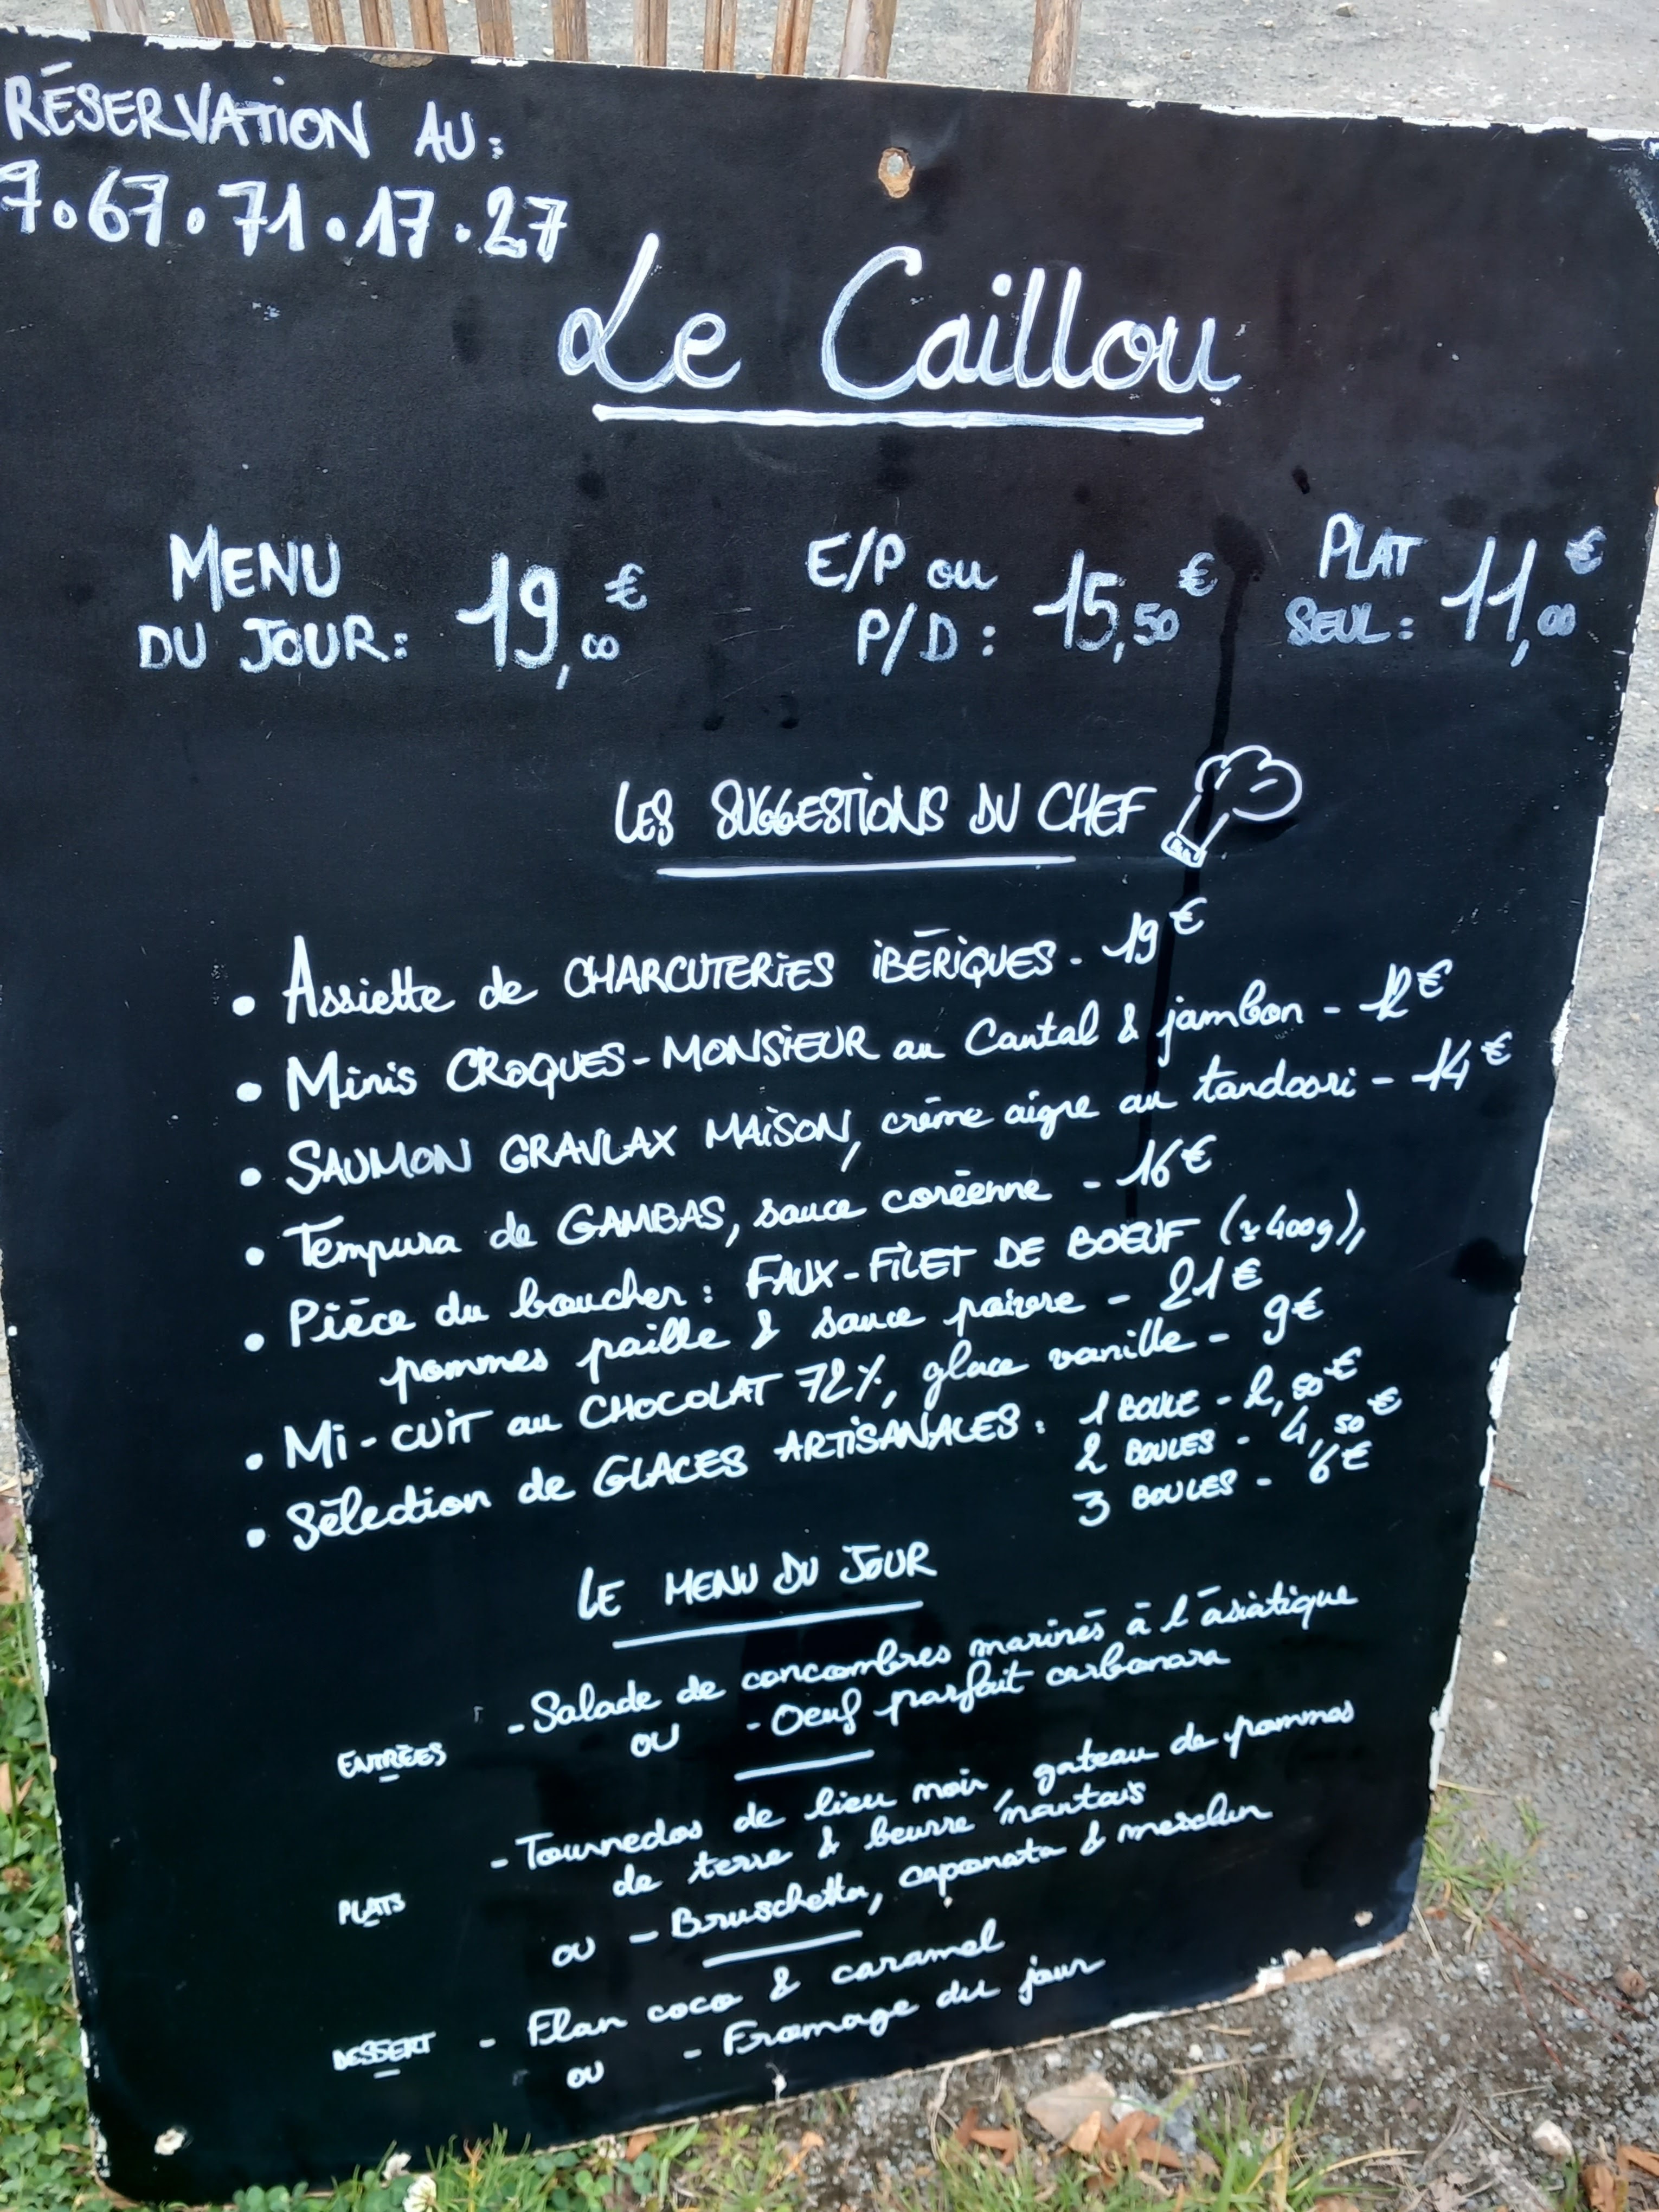 RÉSERVATION AU:
7.67.71.17.27
Le Caillou
MENU DU JOUR: 19,00€
E/P ou P/D: 15,50€
PLAT SEUL: 11,00€
LES SUGGESTIONS DU CHEF
• Assiette de CHARCUTERIES IBÉRIQUES - 19€
• Minis CROQUES-MONSIEUR au Cantal & jambon - 12€
• SAUMON GRAVLAX MAISON, crème aigre au tandoori - 14€
• Tempura de GAMBAS, sauce coréenne - 16€
• Pièce du boucher: FAUX-FILET DE BOEUF (≈400g),
pommes paille & sauce poivre - 21€
• Mi-CUIT au CHOCOLAT 72%, glace vanille - 9€
• Sélection de GLACES ARTISANALES: 1 BOULE - 2,50€
2 BOULES - 4,50€
3 BOULES - 6€
LE MENU DU JOUR
- Salade de concombres marinés à l'asiatique
ENTRÉES
OU - Oeuf parfait carbonara
- Tournedos de lieu noir, gateau de pommes
de terre & beurre nantais
PLATS
OU - Bruschetta, caponata & mesclun
DESSERT - Flan coco & caramel
OU - Fromage du jour